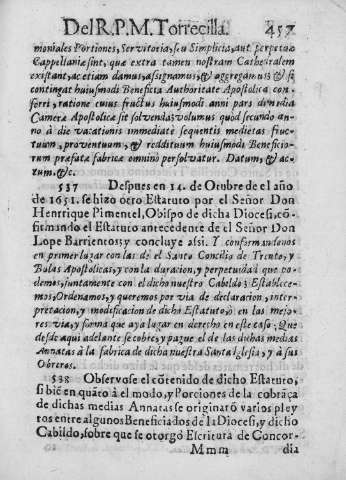 Del R. P. M. Torrecilla. 457
moniales Portiones, Servitoria, seu Simplicia, aut perpetuæ
Cappellaniæ sint, quæ extra tamen nostram Cathedralem
existant, ac etiam damus, assignamus, & aggregamus & si
contingat huiusmodi Beneficia Authoritate Apostolica con-
ferri, ratione cuius fructus huiusmodi anni pars dimidia
Cameræ Apostolicæ sit solvenda: volumus quod secundo an-
no à die vacationis immediate sequentis medietas fruc-
tuum, proventuum, & reddituum huiusmodi Beneficio-
rum præfatæ fabricæ omnino persolvatur. Datum, & ac-
tum, &c.
537 Despues en 14. de Otubre de el año
de 1651. se hizo otro Estatuto por el Señor Don
Henrrique Pimentel, Obispo de dicha Diocesi, cõ-
firmando el Estatuto antecedente de el Señor Don
Lope Barrientos: y concluye assi. Y conformandonos
en primer lugar con las de el Santo Concilio de Trento, y
Bulas Apostolicas, y con la duracion, y perpetuidad que po-
demos, juntamente con el dicho nuestro Cabildo: Establece-
mos, Ordenamos, y queremos por via de declaracion, inter-
pretacion, y modificacion de dicho Estatuto, ò en las mejo-
res via, y forma que aya lugar en derecho en este caso: Que
desde aqui adelante se cobre, y pague el de las dichas medias
Annatas à la fabrica de dicha nuestra Santa Iglesia, y à sus
Obreros.
538 Observose el cõtenido de dicho Estatuto,
si biẽ en quãto à el modo, y Porciones de la cobrãça
de dichas medias Annatas se originarõ varios pley
tos entre algunos Beneficiados de la Diocesi, y dicho
Cabildo, sobre que se otorgò Escritura de Concor-
Mmm dia